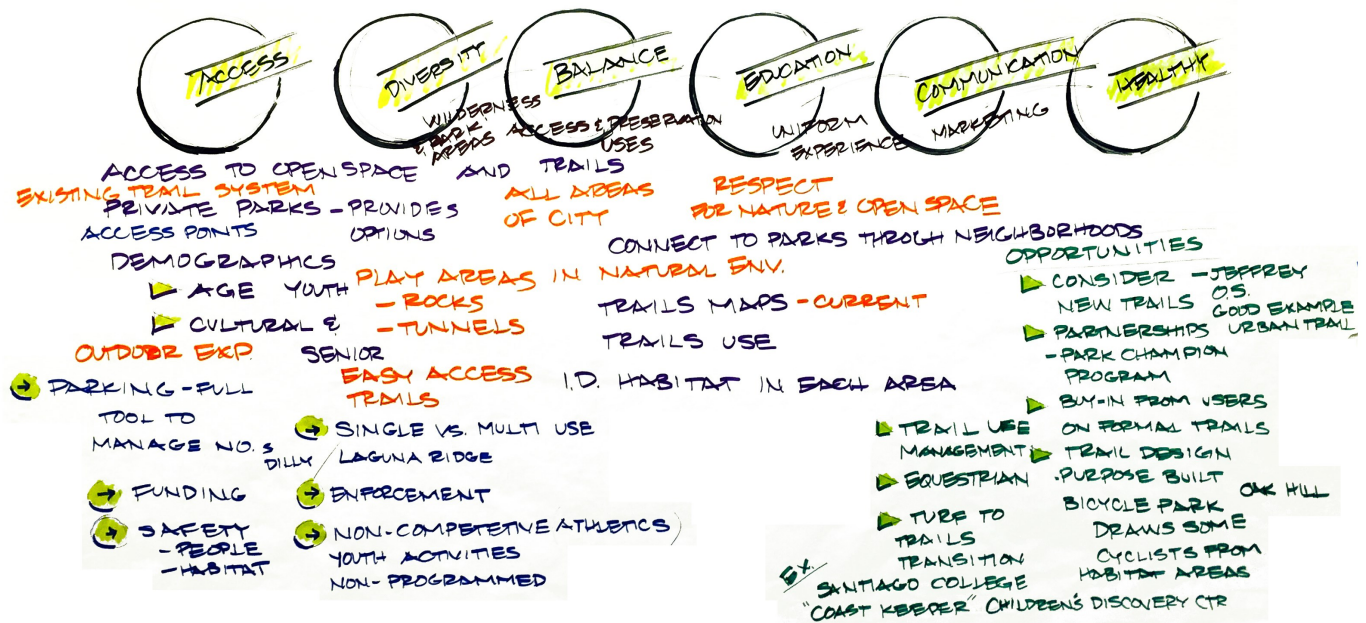 ACCESS
DIVERSITY
WILDERNESS
& PARK
AREAS
BALANCE
ACCESS & PRESERVATION
USES
EDUCATION
UNIFORM
EXPERIENCE
COMMUNICATION
MARKETING
HEALTHY
ACCESS TO OPEN SPACE AND TRAILS
EXISTING TRAIL SYSTEM
PRIVATE PARKS - PROVIDES
OPTIONS
ACCESS POINTS
ALL AREAS
OF CITY
RESPECT
FOR NATURE & OPEN SPACE
CONNECT TO PARKS THROGH NEIGHBORHOODS
DEMOGRAPHICS
AGE YOUTH
CULTURAL &
SENIOR
OUTDOOR EXP.
PLAY AREAS IN NATURAL ENV.
- ROCKS
- TUNNELS
TRAILS MAPS - CURRENT
TRAILS USE
EASY ACCESS
TRAILS
I.D. HABITAT IN EACH AREA
PARKING - FULL
TOOL TO
MANAGE NO. S
DILLY
FUNDING
SAFETY
- PEOPLE
- HABITAT
SINGLE VS. MULTI USE
LAGUNA RIDGE
ENFORCEMENT
NON-COMPETETIVE ATHLETICS)
YOUTH ACTIVITIES
NON-PROGRAMMED
OPPORTUNITIES
CONSIDER - JEFFREY
NEW TRAILS O.S.
GOOD EXAMPLE
URBAN TRAIL
PARTNERSHIPS
- PARK CHAMPION
PROGRAM
BUY-IN FROM USERS
ON FORMAL TRAILS
TRAIL DESIGN
. PURPOSE BUILT
BICYCLE PARK OAK HILL
DRAWS SOME
CYCLISTS FROM
HABITAT AREAS
TRAIL USE
MANAGEMENT
EQUESTRIAN
TURF TO
TRAILS
TRANSITION
EX.
SANTIAGO COLLEGE
"COAST KEEPER" CHILDREN'S DISCOVERY CTR